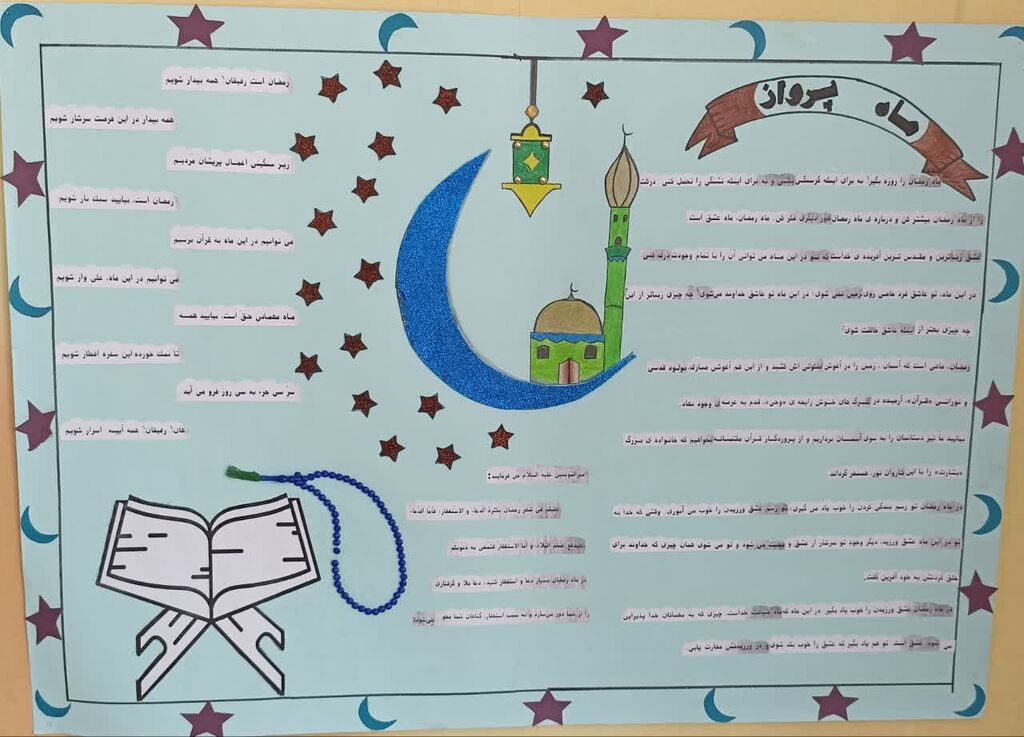 ماه پرواز
ماه رمضان را روزه بگیر! نه برای اینکه گرسنگی بکشی و نه برای اینکه تشنگی را تحمل کنی. درکت
را از ماه رمضان بیشتر کن و درباره ی ماه رمضان جور دیگری فکر کن. ماه رمضان، ماه عشق است.
عشق زیباترین و مقدس ترین آفریده ی خداست که تو در این ماه می توانی آن را با تمام وجودت درک کنی
در این ماه، تو عاشق فرد خاصی روی زمین نمی شوی؛ در این ماه تو عاشق خداوند می‌شوی! چه چیزی زیباتر از این؟
چه چیزی بهتر از اینکه عاشق خالقت شوی؟
رمضان، ماهی است که آسمان، زمین را در آغوش ملکوتی اش کشید و از این هم آغوشی مبارک، مولود قدسی
و نورانی «قرآن»، آرمیده در گلبرگ های خوش رایحه ی «وحی»، قدم به عرصه ی وجود نهاد.
بیایید ما نیز دستانمان را به سوی آسمان برداریم و از پروردگار قرآن ملتمسانه بخواهیم که خانواده ی بزرگ
«بشارت» را با این کاروان نور، همسفر گرداند
در ماه رمضان تو رسم بندگی کردن را خوب یاد می گیری؛ تو رسم عشق ورزیدن را خوب می آموزی. وقتی که خدا به
تو در این ماه عشق ورزید، دیگر وجود تو سرشار از عشق و محبت می شود و تو می شوی همان چیزی که خداوند برای
خلق کردنش به خود آفرین گفت.
در ماه رمضان عشق ورزیدن را خوب یاد بگیر. در این ماه که ماه ضیافت خداست، چیزی که به مهمانان خدا پذیرایی
می شود، عشق است. تو هم یاد بگیر که عشق را خوب بلد شوی و در ورزیدنش مهارت یابی.
رمضان است رفیقان! همه بیدار شویم
همه بیدار در این فرصت سرشار شویم
زیر سنگینی اعمال پریشان مُردیم
رمضان است، بیایید سبک بار شویم
می توانیم در این ماه به قرآن برسیم
می توانیم در این ماه، علی وار شویم
ماه مهمانی حقّ است، بیایید همه
تا نمک خورده این سفره افطار شویم
سرّ سی جزء به سی روز فرو می آید
هان! رفیقان! همه آیینه اسرار شویم
امیرالمومنین علیه السلام می فرمایند:
علیکم فی شهر رمضان بکثرة الدعاء و الاستغفار؛ فأما الدعاء
فیدفع عنکم البلاء و أما الاستغفار فتمحی به ذنوبکم
در ماه رمضان بسیار دعا و استغفار کنید؛ دعا بلا و گرفتاری
را از شما دور می‌سازد و به سبب استغفار، گناهان شما محو می‌شود.